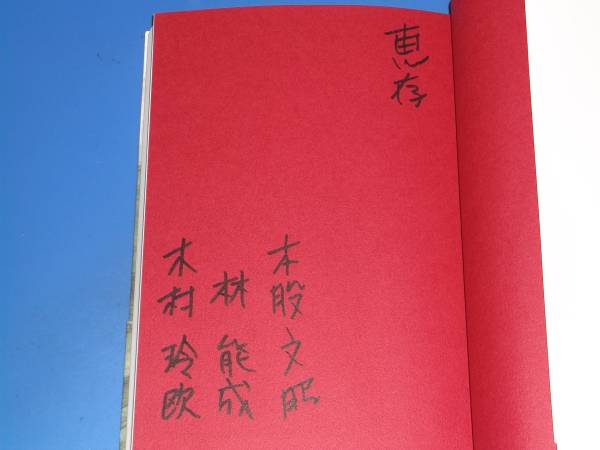 恵存
木股文昭
林能成
木村玲欧